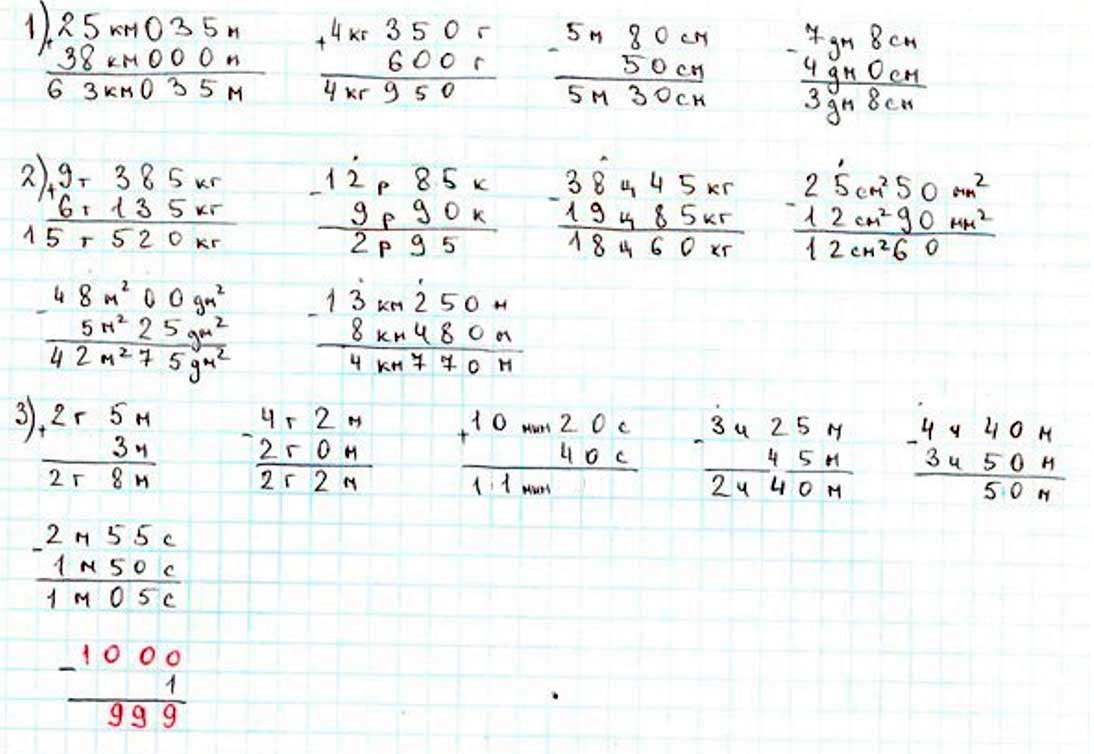 1) + 25 км 035 м   + 4 кг 350 г   - 5 м 80 см   - 7 дм 8 см
38 км 000 м   600 г   50 см   4 дм 0 см
63 км 035 м   4 кг 950   5 м 30 см   3 дм 8 см
2) + 9 т 385 кг   - 12 р 85 к   - 38 ц 45 кг   - 25 см² 50 мм²
6 т 135 кг   9 р 90 к   19 ц 85 кг   12 см² 90 мм²
15 т 520 кг   2 р 95   18 ц 60 кг   12 см² 60
- 48 м² 00 дм²   - 13 км 250 м
5 м² 25 дм²   8 км 480 м
42 м² 75 дм²   4 км 770 м
3) + 2 г 5 м   - 4 г 2 м   + 10 мин 20 с   - 3 ч 25 м   - 4 ч 40 м
3 м   2 г 0 м   40 с   45 м   3 ч 50 м
2 г 8 м   2 г 2 м   11 мин   2 ч 40 м   50 м
- 2 м 55 с
1 м 50 с
1 м 05 с
- 1000
1
999